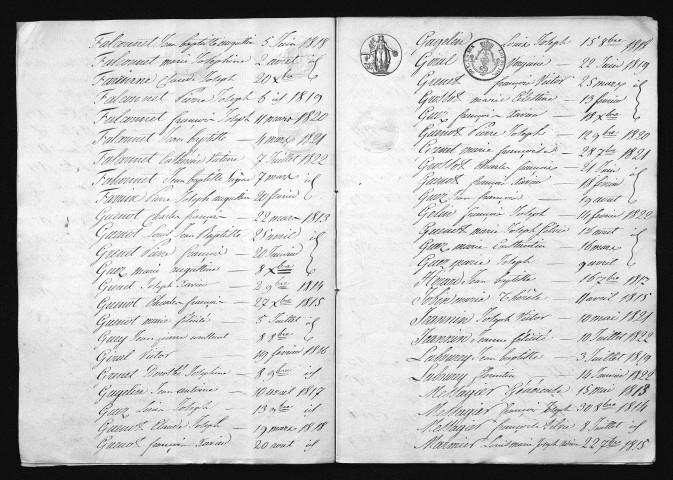 Falconnet Jean baptiste augustin 5 Juin 1818
Falconnet marie Josephine 2 avril id
Claude Joseph 20 Xbre id
Falconnet Pierre Joseph 6 id 1819
Falconnet françois Joseph 11 mars 1820
Falconnet Jean baptiste 4 mars 1821
Falconnet Catherine Victoire 7 Juillet 1822
Falconnet Jean baptiste 7 mars id
Pierre Joseph augustin 20 février id
Guenot Charles françois — 22 mars 1813
Guenot Louis Jean Baptiste 25 avril id
Guenot Pierre françois 20 Janvier id
Guez marie augustine — 8 Xbre id
Guenot Joseph Xavier — 2 9bre 1814
Guenot Charles françois — 22 Xbre 1815
Guenot marie félicité — 5 Juillet id
Guez Jean pierre — 8 8bre
Victor — 19 février 1816
Josephine — 8 9bre id
Gagelin Jean antoine — 10 avril 1817
Guez Louis Joseph — 13 9bre id
Guenot Claude Joseph — 19 mars 1818
Guenot françois Xavier — 20 aout id
Gagelin Louis Joseph 15 8bre 1818
— 22 Juin 1819
Guenot françois Victor — 25 mars id
marie Célestine — 13 février
Guez françois Xavier — 18 Xbre
Guenot Pierre Joseph — 12 9bre 1820
marie françoise — 28 7bre 1821
Charles françois — 21 Juin id
Guenot françois Xavier — 18 février
Guez Jean françois — 19 avril
françois Joseph — 11 février 1822
marie Joseph 12 avril id
Guez marie — 16 mars
Guez Joseph — 9 avril
Jean baptiste — 16 7bre 1817
marie Thérèse — 11 avril 1815
Jeannin Joseph Victor — 10 mai 1821
Jeannin félicité — 10 Juillet 1822
Jean baptiste — 3 Juillet 1819
— 14 Janvier 1822
Messagier — 15 mai 1813
Messagier françois Joseph 30 8bre 1814
Messagier françois 8 Juillet id
Marmier Louis marie Joseph 22 7bre 1815